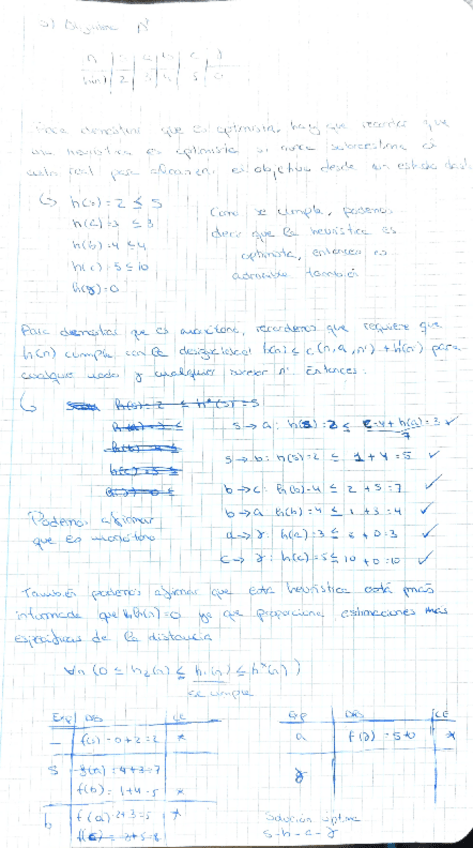 a) Algoritmo A*
n | s | a | b | c | γ
h(n) | 2 | 3 | 4 | 5 | 0
Para demostrar que es optimista, hay que recordar que
una heurística es optimista si nunca sobreestima el
coste real para alcanzar el objetivo desde un estado dado.
h(s)=2 ≤ 5
h(a)=3 ≤ 3
h(b)=4 ≤ 4
h(c)=5 ≤ 10
h(γ)=0
Como se cumple, podemos
decir que la heurística es
optimista, entonces es
admisible también
Para demostrar que es monótona, recordemos que requiere que
h(n) cumpla con la desigualdad h(n) ≤ c(n,a,n')+h(n') para
cualquier nodo y cualquier sucesor n'. Entonces:
h(s)=2 ≤ h*(s)=5
h(a)=3 ≤
h(b)=4 ≤
h(c)=5 ≤
s→a: h(s)=2 ≤ 4+h(a)=3 ✓
7
s→b: h(s)=2 ≤ 1+4=5 ✓
b→c: h(b)=4 ≤ 2+5=7 ✓
b→a h(b)=4 ≤ 1+3=4 ✓
a→γ: h(a)=3 ≤ 3+0=3 ✓
c→γ: h(c)=5 ≤ 10+0=10 ✓
Podemos afirmar
que es monótona
También podemos afirmar que esta heurística está más
informada que h(n)=0 ya que proporciona estimaciones más
específicas de la distancia
∀n (0 ≤ h₂(n) ≤ h₁(n) ≤ h*(n))
se cumple
Exp | DB | CE
— | f(s)=0+2=2 | *
s | f(a)=4+3=7
f(b)=1+4=5 | *
b | f(a)=2+3=5 | *
Exp | DB | CE
a | f(γ)=5+0 | *
γ
Solución óptima
s-b-a-γ